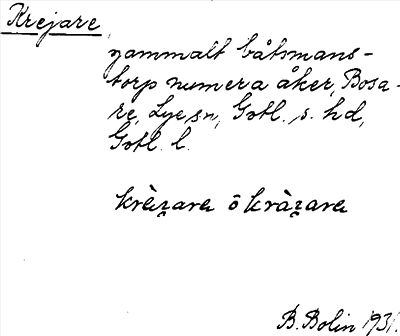 Krejare,
gammalt båtsmans-
torp numera åker, Bosa-
re, Lye sn, Gotl. s. hd,
Gotl. l.
B. Bolin 1931.